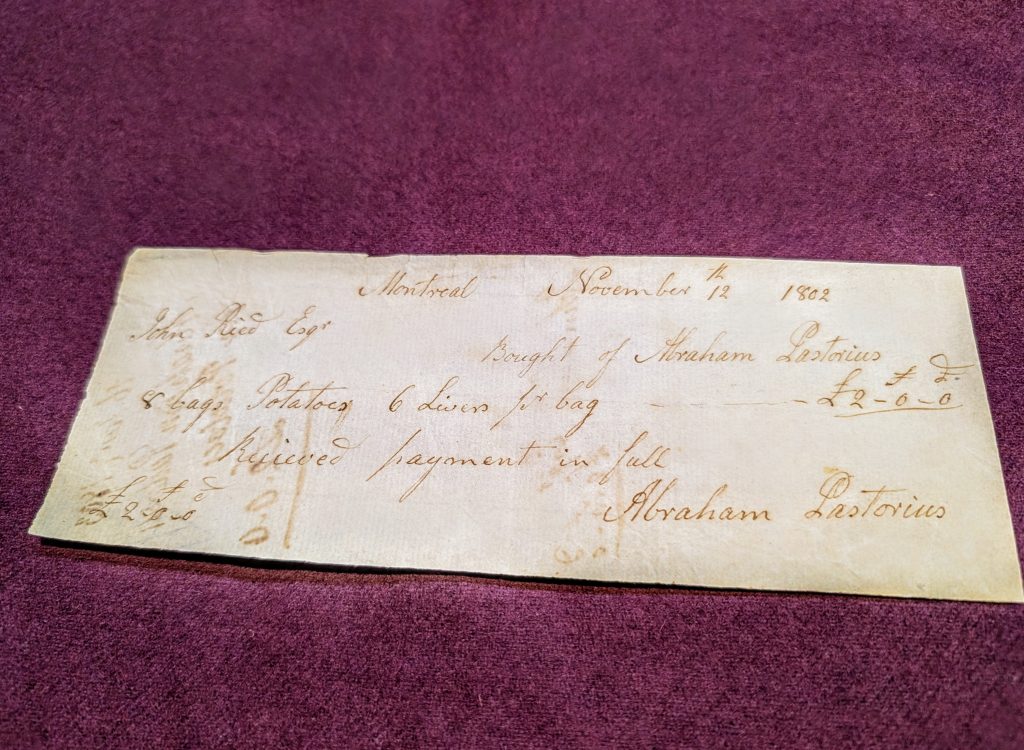 Montreal November 12th 1802
John Ried Esqr
Bought of Abraham Pastorius
£ s d
8 bags Potatoes 6 Livers pr bag £2-0-0
Recieved payment in full
£ s d
£2-0-0
Abraham Pastorius